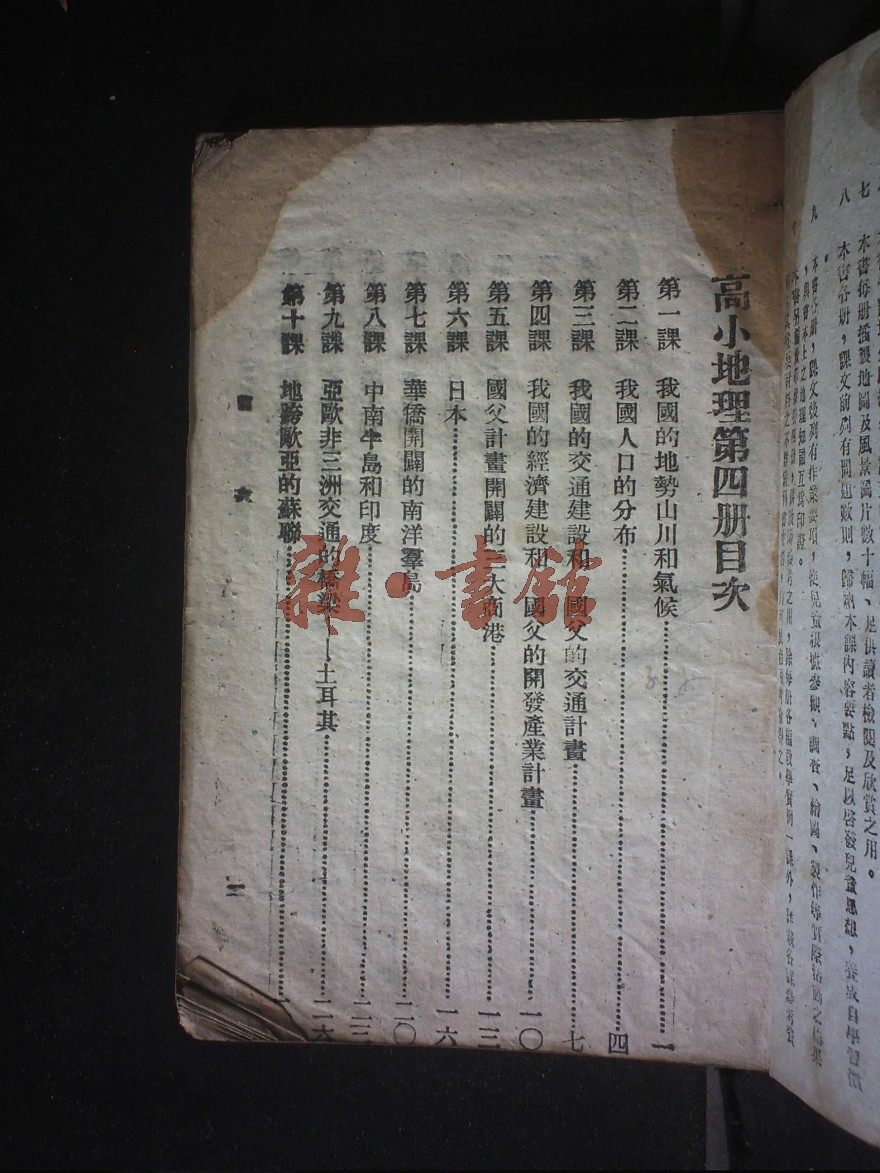 七 本書每册插製地圖及風景圖片數十幅、足供讀者檢閱及欣賞之用。
八 本書各册，課文前列有問題數則，歸納本課內容要點，足以啓發兒童思想，養成自學習慣
九 本書各册，課文後列有作業要項，使兒童根據參觀、調查、繪圖、製作等實際活動之結果
，與書本上之地理知識互爲印證。
高小地理第四册目次
第一課 我國的地勢山川和氣候 一
第二課 我國人口的分布 四
第三課 我國的交通建設和 國父的交通計畫 七
第四課 我國的經濟建設和 國父的開發產業計畫 一〇
第五課 國父計畫開闢的三大商港 一三
第六課 日本 一六
第七課 華僑開闢的南洋羣島 二〇
第八課 中南半島和印度 二三
第九課 亞歐非三洲交通的橋梁——土耳其 二六
第十課 地跨歐亞的蘇聯
目 次 一
雜·書館